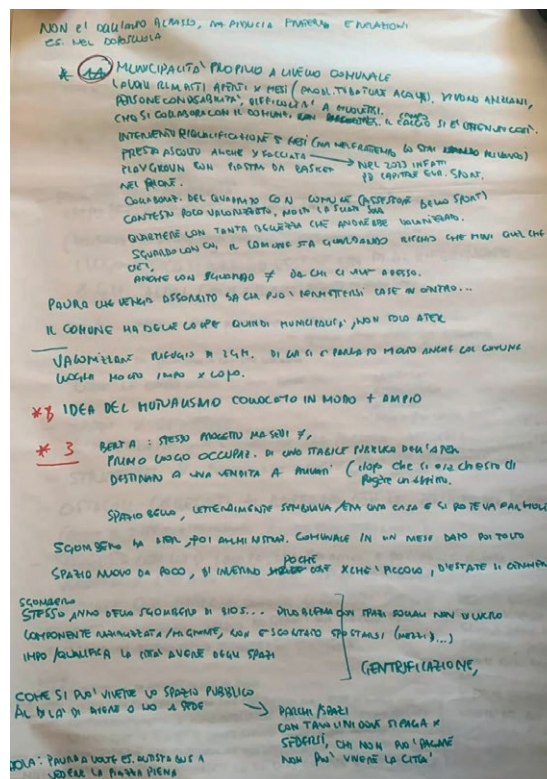 NON E' DALL'ALTO AL BASSO, MA FIDUCIA FRATERNA E RELAZIONI
ES. NEL DOPOSCUOLA
* 11 MUNICIPALITA' PROPRIO A LIVELLO COMUNALE
LAVORI RIMASTI APERTI X MESI (PROB. TUBATURE ACQUA), VIVONO ANZIANI,
PERSONE CON DISABILITA', DIFFICOLTA' A MUOVERSI. CAMPO
CHO SI COLLABORA CON IL COMUNE, IL CALCIO SI E' OTTENUTO COSI'.
INTERVENTO RIQUALIFICAZIONE 5 MESI (MA NEL FRATTEMPO LO STAN)
PRESTO ASCOLTO ANCHE X FACCIATA → NEL 2023 INFATTI
PLAYGROUN CON PIASTRA DA BASKET PD CAPITALE EUR. SPORT.
NEL RIONE.
COLLABORAZ. DEL QUARTIERE CON COMUNE (ASSESSORE DELLO SPORT)
CONTESTO POCO VALORIZZATO, NOTA LA SUA
QUARTIERE CON TANTA BELLEZZA CHE ANDREBBE VALORIZZATO.
SGUARDO CON CUI IL COMUNE STA GUARDANDO RISCHIO CHE MINI QUEL CHE
C'E',
ANCHE CON SGUARDO ≠ DA CHI CI VIVE ADESSO.
PAURA CHE VENGA ASSORBITO DA CHI PUO' PERMETTERSI CASE IN CENTRO...
IL COMUNE HA DELLE CASE QUINDI MUNICIPALITA', NON SOLO ATER
VALORIZZARE RIFUGIO 2GM. DI CUI SI E' PARLATO MOLTO ANCHE COL COMUNE
LUOGHI MOLTO IMPO X LORO.
* 8 IDEA DEL MUTUALISMO COLLOCATO IN MODO + AMPIO
* 3 BERTA: STESSO PROGETTO MA SEDI ≠,
PRIMO LUOGO OCCUPAZ. DI UNO STABILE PUBBLICO DELL'ATER
DESTINATO A UNA VENDITA A PRIVATI (dopo che si era chiesto di
pagare un affitto.
SPAZIO BELLO, LETTERALMENTE SEMBRAVA/ERA UNA CASA E SI POTEVA FAR MOLTO
SGOMBERO DA ATER, POI AMMINISTRAZ. COMUNALE IN UN MESE DATO POI TOLTO
SPAZIO NUOVO DA POCO, D'INVERNO POCHE ORE XCHE' PICCOLO, D'ESTATE SI
SGOMBERO
STESSO ANNO DELLO SGOMBERO DI BIOS... PROBLEMA CON SPAZI SOCIALI NON A LUCRO
COMPONENTE RAZZIALIZZATA/MIGRANTE, NON E' SCONTATO SPOSTARSI (MEZZI),...)
IMPO/QUALIFICA LA CITTA' AVERE DEGLI SPAZI
GENTRIFICAZIONE,
COME SI PUO' VIVERE LO SPAZIO PUBBLICO
AL DI LA' DI AVERE O NO 1 SEDE → PARCHI/SPAZI
CON TAVOLINI DOVE SI PAGA X
SEDERSI, CHI NON PUO' PAGARE
NON PUO' VIVERE LA CITTA'
PAURA A VOLTE ES. AUTISTA BUS A
VEDERE LA PIAZZA PIENA